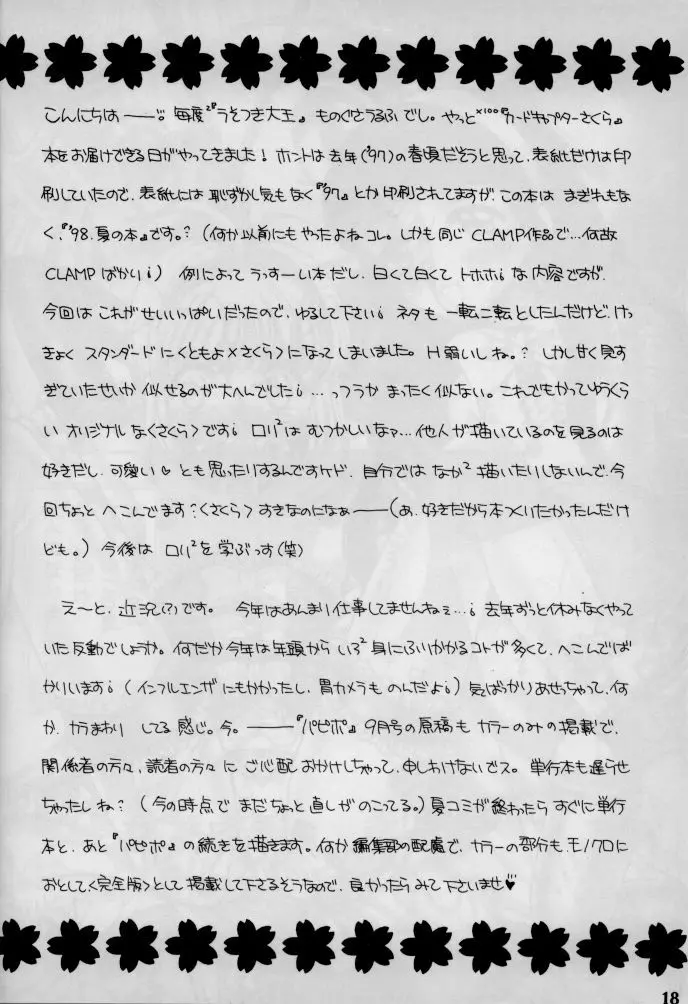 こんにちはー―゛。毎度²『うそつき大王』ものぐさうるふでし。やっと×¹⁰⁰『カードキャプターさくら』
本をお届けできる日がやってきました! ホントは去年('97)の春頃だそうと思って、表紙だけは印
刷していたので、表紙には恥ずかし気もなく『'97』とか印刷されてますが、この本は まぎれもな
く、『'98.夏の本』です。?(何か以前にもやったよねコレ。しかも同じ CLAMP作品で…何故
CLAMPばかり¡) 例によって うっすーい本だし、白くて白くて トホホ¡な内容ですが、
今回は これがせいいっぱいだったので、ゆるして下さい¡ ネタも 一転二転としたんだけど、けっ
きょく スタンダードに〈ともよ×さくら〉になってしまいました。H弱いしね。? しかし甘く見す
ぎていたせいか 似せるのが大へんでした¡…っつうか まったく似ない。これでもかってゆうくら
い オリジナルな〈さくら〉です¡ ロリ²は むつかしいなァ…他人が描いているのを見るのは
好きだし、可愛い♡とも思ったりするんですケド、自分では なか²描いたりしないんで、今
回ちょっと へこんでます?〈さくら〉すきなのになぁ――(あ、好きだから本つくりたかったんだけ
ども。) 今後は ロリ²を学ぶっす(笑)
え〜と、近況(?)です。 今年はあんまり仕事してませんねェ…¡ 去年ずっと休みなくやって
いた反動でしょうか。何だか今年は年頭から いろ²身にふりかかるコトが多くて、へこんでば
かりいます¡(インフルエンザにもかかったし、胃カメラものんだよ¡) 気ばっかりあせちゃって、何
か、カラまわり してる感じ。今。――『パピポ』9月号の原稿も カラーのみの掲載で、
関係者の方々、読者の方々に ご心配おかけしちゃって、申しわけないでス。単行本も遅らせ
ちゃったしね?(今の時点で まだちょっと直しがのこってる。)夏コミが終わったら すぐに単行
本と、あと『パピポ』の続きを描きます。何か編集部の配慮で、カラーの部分も、モノクロに
おとして〈完全版〉として掲載して下さるそうなので、良かったらみて下さいませ♥
18